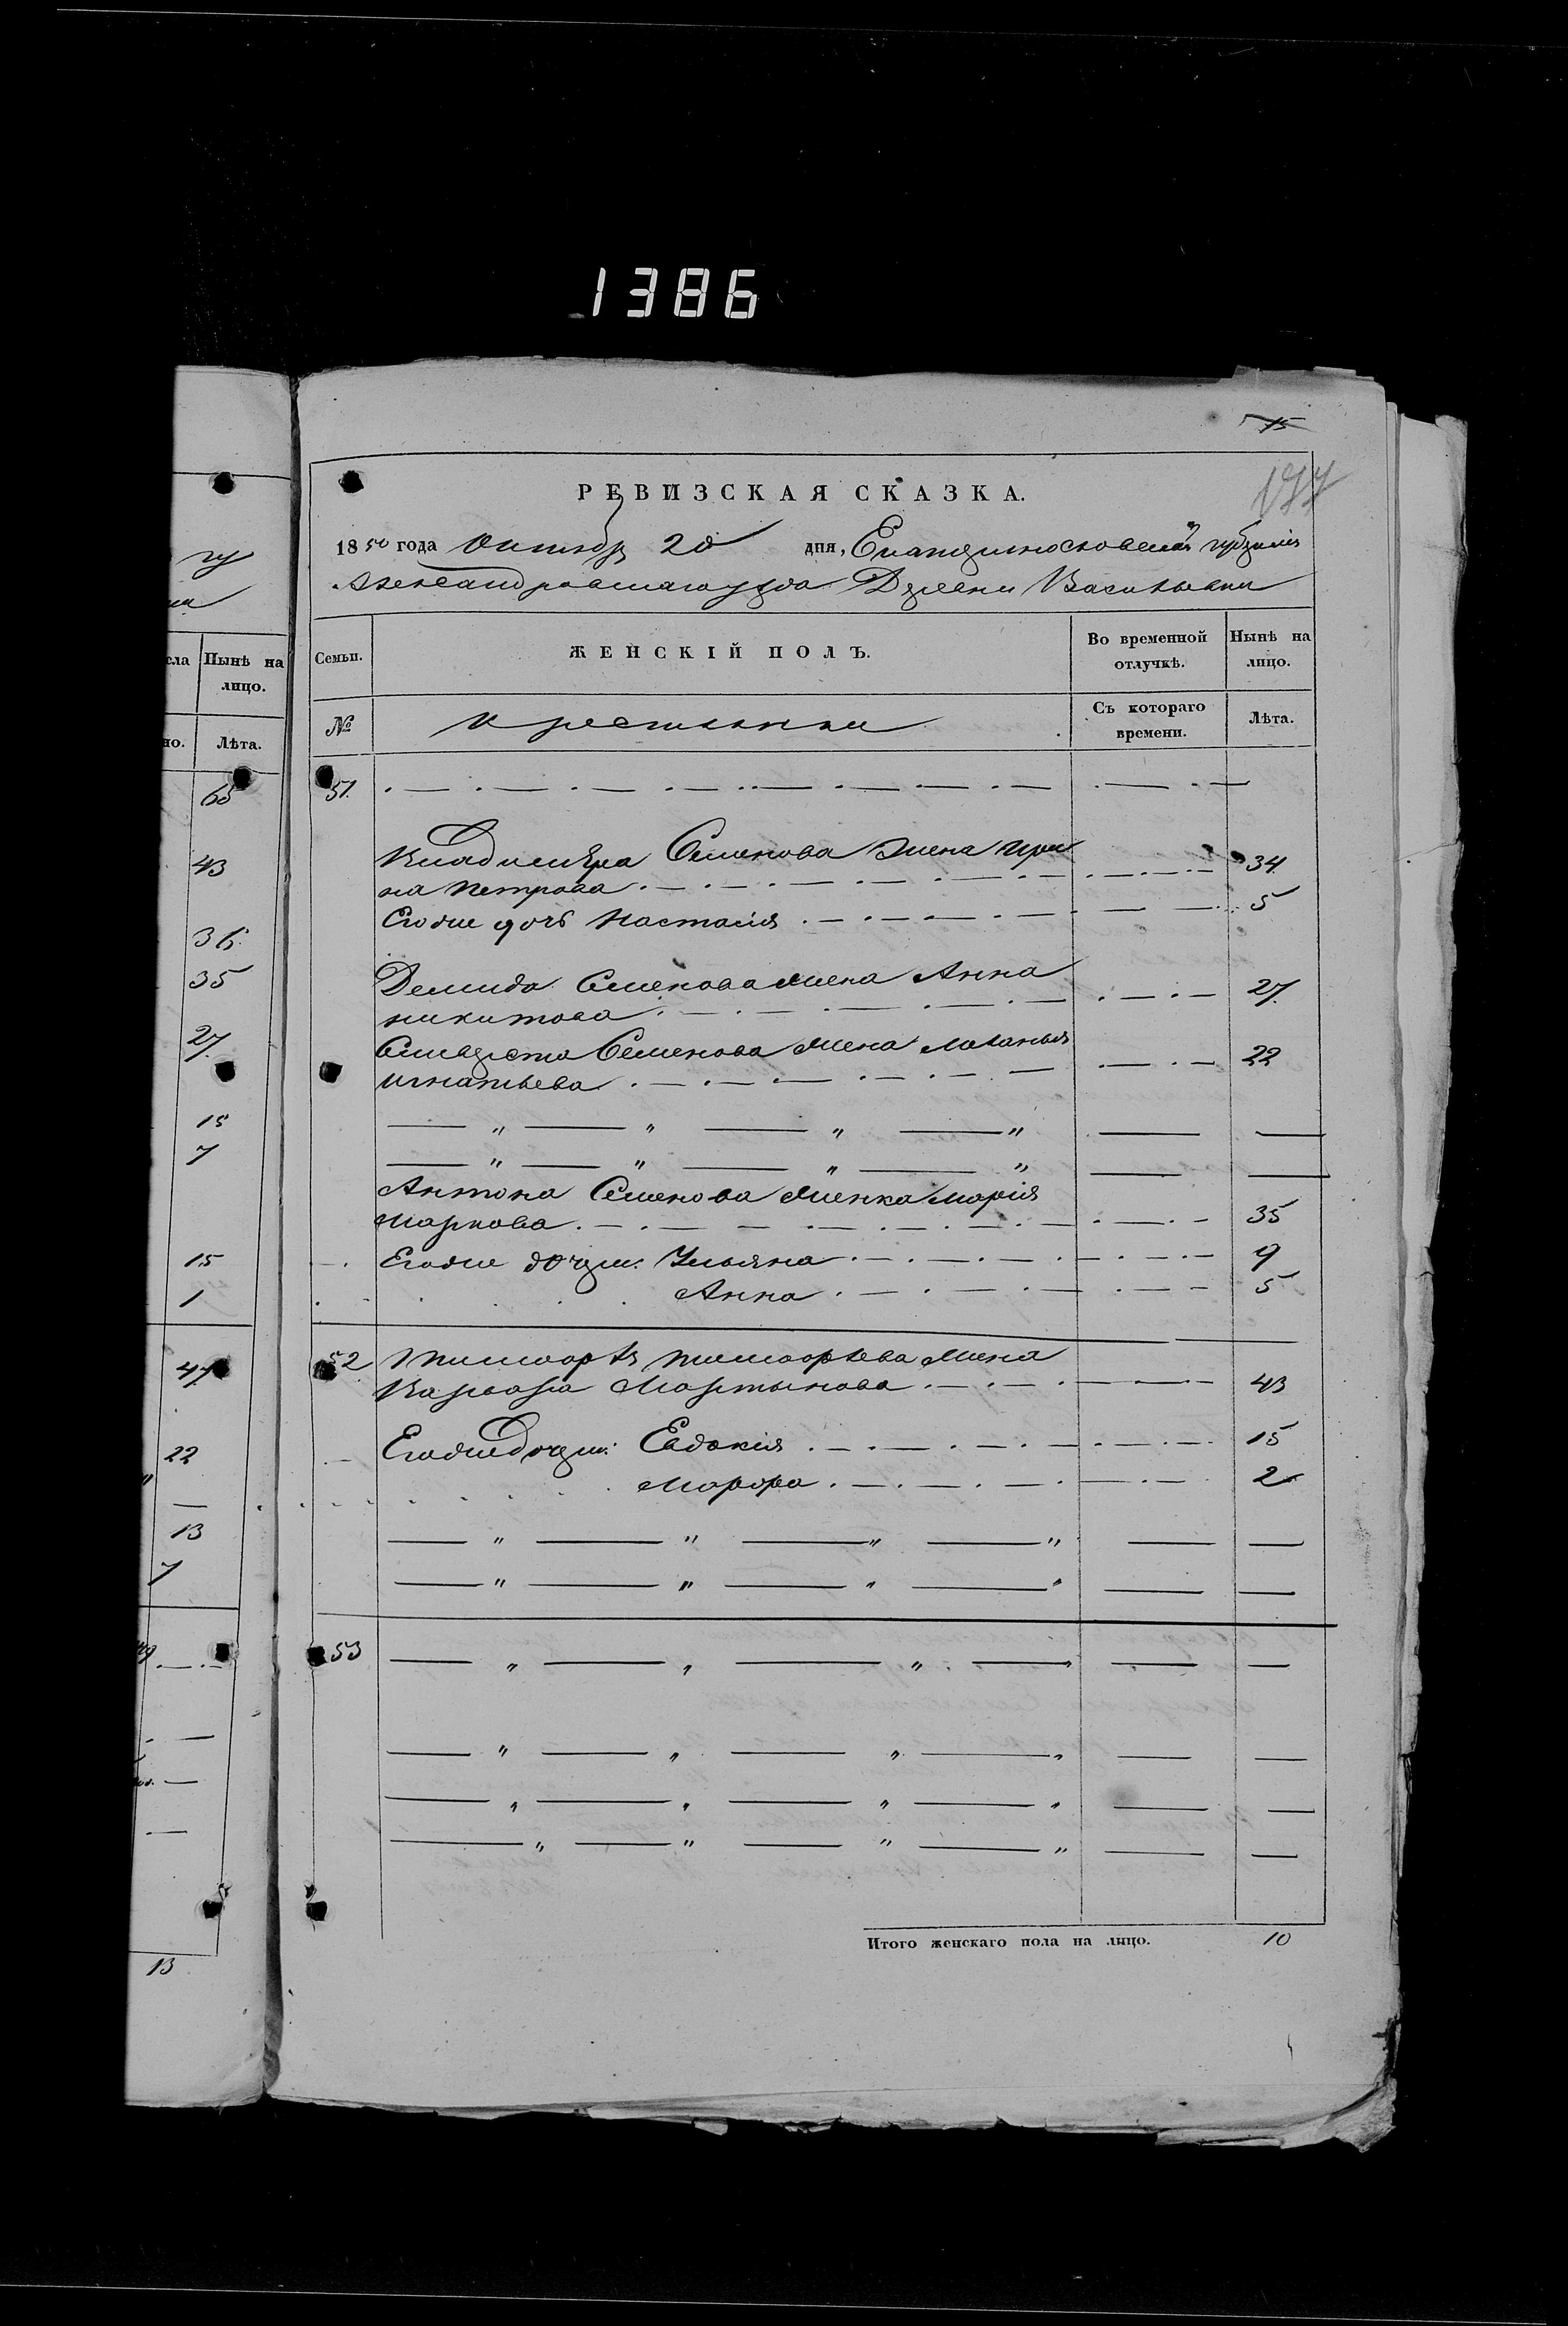 1386
15
177
РЕВИЗСКАЯ СКАЗКА.
1850 года Октября 20 дня, Екатеринославской губернiи
Александровскаго уезда Деревни Васильевки
сла Нынѣ на лицо.
но. Лѣта.
65
43
36
35
27
15
7
15
1
47
22
13
7
13
Семьи. ЖЕНСКІЙ ПОЛЪ. Во временной отлучкѣ. Нынѣ на лицо.
№ Крестьянки Съ котораго времени. Лѣта.
51.
Владимера Семенова жена Ири
на Петрова 34
Егоже дочь Настасія 5
Демида Семенова жена Анна
Никитова 27
Семенова жена Маланья
Игнатьева 22
Антона Семенова женка Марія
Маркова 35
Егоже дочери: Ульяна 9
Анна 5
52 Тимофѣя Тимофѣева жена
Варвара Мартынова 43
Егоже дочери: Евдокія 15
Марфа 2
53
Итого женскаго пола на лицо. 10